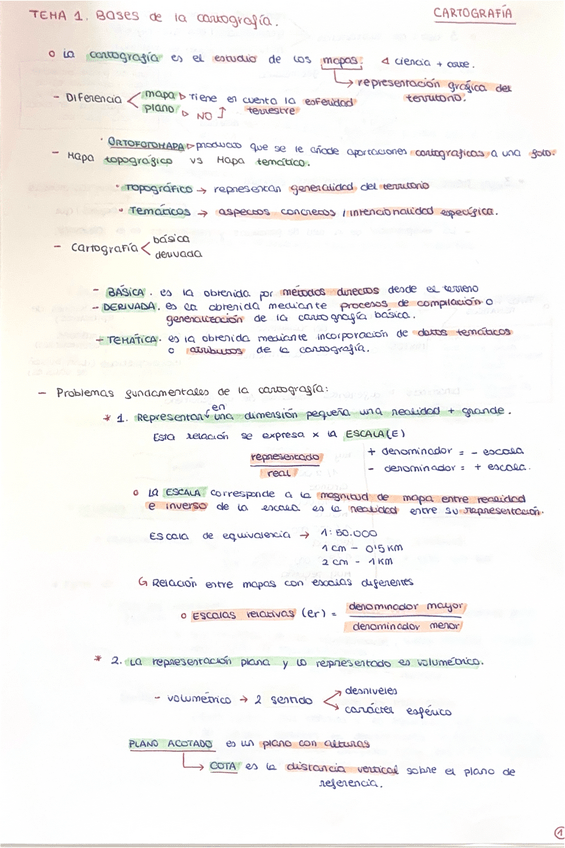 TEMA 1. Bases de la cartografía.
CARTOGRAFÍA
La cartografía es el estudio de los mapas. ciencia + arte.
representación gráfica del
territorio.
- Diferencia < mapa tiene en cuenta la esferidad
plano NO terrestre
· ORTOFOTOMAPA producto que se le añade aportaciones cartográficas a una foto.
- Mapa topográfico vs Mapa temático.
· Topográfico → representan generalidad del territorio
· Temáticos → aspectos concretos / intencionalidad específica.
- Cartografía < básica
derivada
- BÁSICA. es la obtenida por métodos directos desde el terreno
- DERIVADA. es la obtenida mediante procesos de compilación o
generalización de la cartografía básica.
- TEMÁTICA. es la obtenida mediante incorporación de datos temáticos
o atributos de la cartografía.
- Problemas fundamentales de la cartografía:
* 1. Representar en una dimensión pequeña una realidad + grande.
Esta relación se expresa x la ESCALA (E)
representado
real
+ denominador = - escala
- denominador = + escala.
o La ESCALA corresponde a la magnitud de mapa entre realidad
e inverso de la escala es la realidad entre su representación.
Escala de equivalencia → 1:50.000
1 cm - 0'5 km
2 cm - 1 km
Relación entre mapas con escalas diferentes
o Escalas relativas (er) = denominador mayor
denominador menor
* 2. La representación plana y lo representado es volumétrico.
- volumétrico → 2 sentido desniveles
carácter esférico
PLANO ACOTADO es un plano con alturas
COTA es la distancia vertical sobre el plano de
referencia.
1